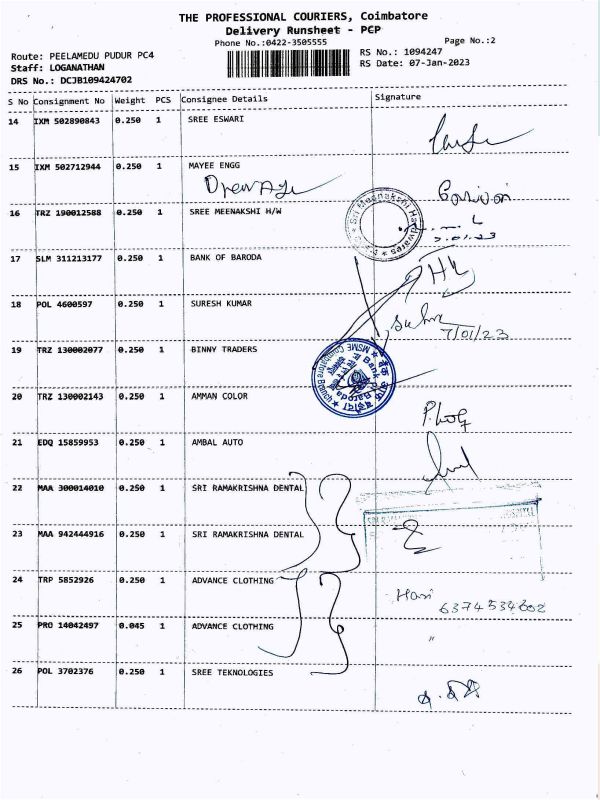 THE PROFESSIONAL COURIERS, Coimbatore
Delivery Runsheet - PCP
Phone No.:0422-3505555
Page No.:2
Route: PEELAMEDU PUDUR PC4
RS No.: 1094247
Staff: LOGANATHAN
RS Date: 07-Jan-2023
DRS No.: DCJB109424702
S No Consignment No Weight PCS Consignee Details Signature
14 IXM 502890843 0.250 1 SREE ESWARI
15 IXM 502712944 0.250 1 MAYEE ENGG
16 TRZ 190012588 0.250 1 SREE MEENAKSHI H/W
Sri Meenakshi Hardwares
17 SLM 311213177 0.250 1 BANK OF BARODA
18 POL 4600597 0.250 1 SURESH KUMAR
7/01/23
19 TRZ 130002077 0.250 1 BINNY TRADERS
Bank of Baroda
MSME Coimbatore Branch
20 TRZ 130002143 0.250 1 AMMAN COLOR
21 EDQ 15859953 0.250 1 AMBAL AUTO
22 MAA 300014010 0.250 1 SRI RAMAKRISHNA DENTAL
23 MAA 942444916 0.250 1 SRI RAMAKRISHNA DENTAL
24 TRP 5852926 0.250 1 ADVANCE CLOTHING
Hari
6374534602
25 PRO 14042497 0.045 1 ADVANCE CLOTHING
"
26 POL 3702376 0.250 1 SREE TEKNOLOGIES